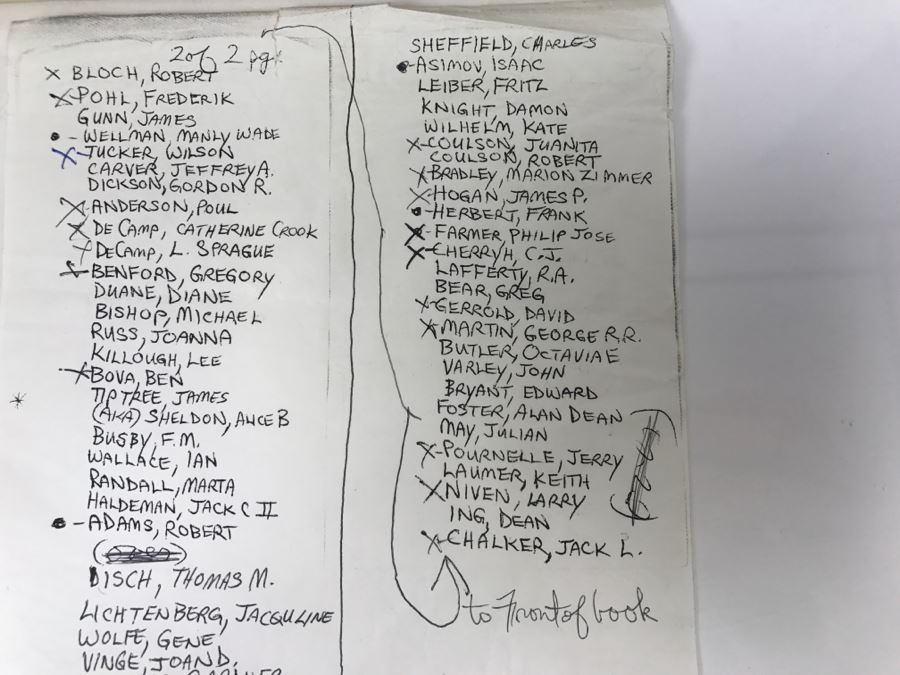 2 of 2 pg
X BLOCH, ROBERT
X-POHL, FREDERIK
GUNN, JAMES
•-WELLMAN, MANLY WADE
X-TUCKER, WILSON
CARVER, JEFFREY A.
DICKSON, GORDON R.
X-ANDERSON, POUL
X DE CAMP, CATHERINE CROOK
X DECAMP, L. SPRAGUE
X-BENFORD, GREGORY
DUANE, DIANE
BISHOP, MICHAEL
RUSS, JOANNA
KILLOUGH, LEE
X-BOVA, BEN
TIPTREE, JAMES
* (AKA) SHELDON, ALICE B
BUSBY, F.M.
WALLACE, IAN
RANDALL, MARTA
HALDEMAN, JACK C II
•-ADAMS, ROBERT
DISCH, THOMAS M.
LICHTENBERG, JACQULINE
WOLFE, GENE
VINGE, JOAN D.
SHEFFIELD, CHARLES
•-ASIMOV, ISAAC
LEIBER, FRITZ
KNIGHT, DAMON
WILHELM, KATE
X-COULSON, JUANITA
COULSON, ROBERT
X-BRADLEY, MARION ZIMMER
X-HOGAN, JAMES P.
•-HERBERT, FRANK
X-FARMER, PHILIP JOSE
X-CHERRYH, C.J.
LAFFERTY, R.A.
BEAR, GREG
X-GERROLD, DAVID
X-MARTIN, GEORGE R.R.
BUTLER, OCTAVIA E
VARLEY, JOHN
BRYANT, EDWARD
FOSTER, ALAN DEAN
MAY, JULIAN
X-POURNELLE, JERRY
LAUMER, KEITH
X-NIVEN, LARRY
ING, DEAN
X-CHALKER, JACK L.
to Front of book